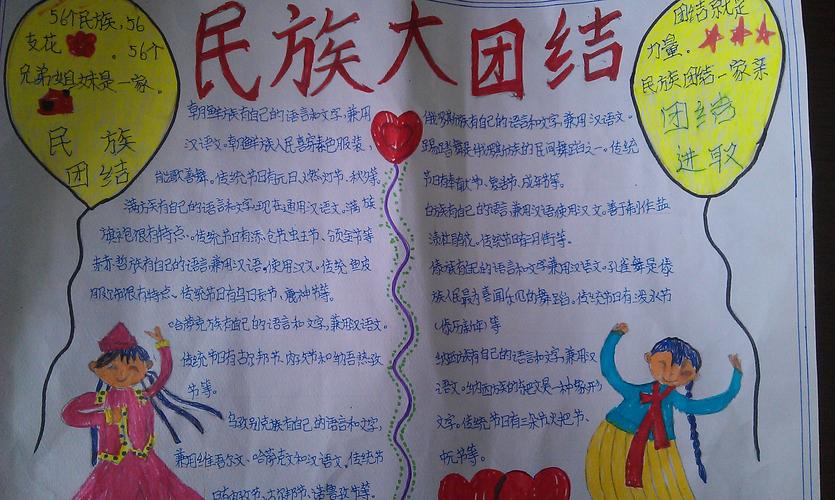 民族大团结
56个民族,56
支花 。56个
兄弟姐妹是一家。
民 族
团结
朝鲜族有自己的语言和文字,兼用
汉语文。朝鲜族人民喜穿素色服装,
能歌善舞。传统节日有元日、燃灯节、秋夕等。
满族有自己的语言和文字,现在通用汉语文。满族
旗袍很有特点。传统节日有添仓节、虫王节、颁金节等
赫哲族有自己的语言兼用汉语。使用汉文。传统鱼皮
服饰很有特点、传统节日有乌日贡节、鹿神节等。
哈萨克族有自己的语言和文字,兼用汉语文。
传统节日有古尔邦节、肉孜节和纳吾热孜
节等。
乌孜别克族有自己的语言和文字,
兼用维吾尔文、哈萨克文和汉语文。传统节
日有肉孜节、古尔邦节、诺鲁孜节等。
俄罗斯族有自己的语言和文字,兼用汉语文。
踢踏舞是俄罗斯族的民间舞蹈之一。传统
节日有春耕节、复活节、成年节等。
白族有自己的语言兼用汉语使用汉文。善于制作盐
渍 。传统节日有三月街等。
傣族有自己的语言和文字兼用汉语文。孔雀舞是傣
族人民最为喜闻乐见的舞蹈。传统节日有泼水节
(傣历新年)等
纳西族有自己的语言和文字,兼用汉
语文。纳西族的东巴文是一种象形
文字。传统节日有三朵节、火把节、
节等。
团结就是
力量。
民族团结一家亲
团结
进取